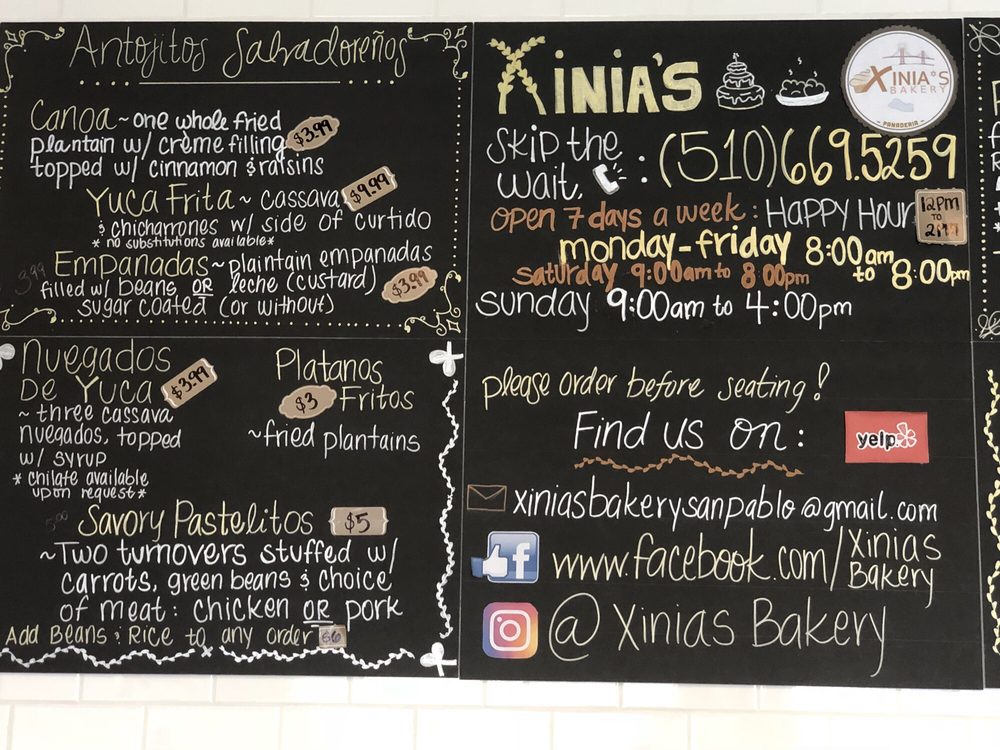 Antojitos Salvadoreños
Canoa ~ one whole fried
plantain w/ crème filling $3.99
topped w/ cinnamon & raisins
Yuca Frita ~ cassava $9.99
& chicharrones w/ side of curtido
* no substitutions available *
3.99 Empanadas ~ plaintain empanadas
filled w/ beans OR leche (custard) $3.99
sugar coated (or without)
Nuegados
De Yuca $3.99
~ three cassava
nuegados, topped
w/ syrup
* chilate available
upon request *
Platanos
$3 Fritos
~fried plantains
5.00 Savory Pastelitos $5
~Two turnovers stuffed w/
carrots, green beans & choice
of meat: chicken OR pork
Add Beans & Rice to any order $6
Xinia's
XINIA'S
BAKERY
PANADERIA
Skip the
wait, : (510)669.5259
open 7 days a week: Happy Hour 12pm
to
2pm
monday-friday 8:00am
to 8:00pm
saturday 9:00am to 8:00pm
sunday 9:00am to 4:00pm
please order before seating!
Find us on: yelp
xiniasbakerysanpablo@gmail.com
f www.facebook.com/Xinias
Bakery
@ Xinias Bakery